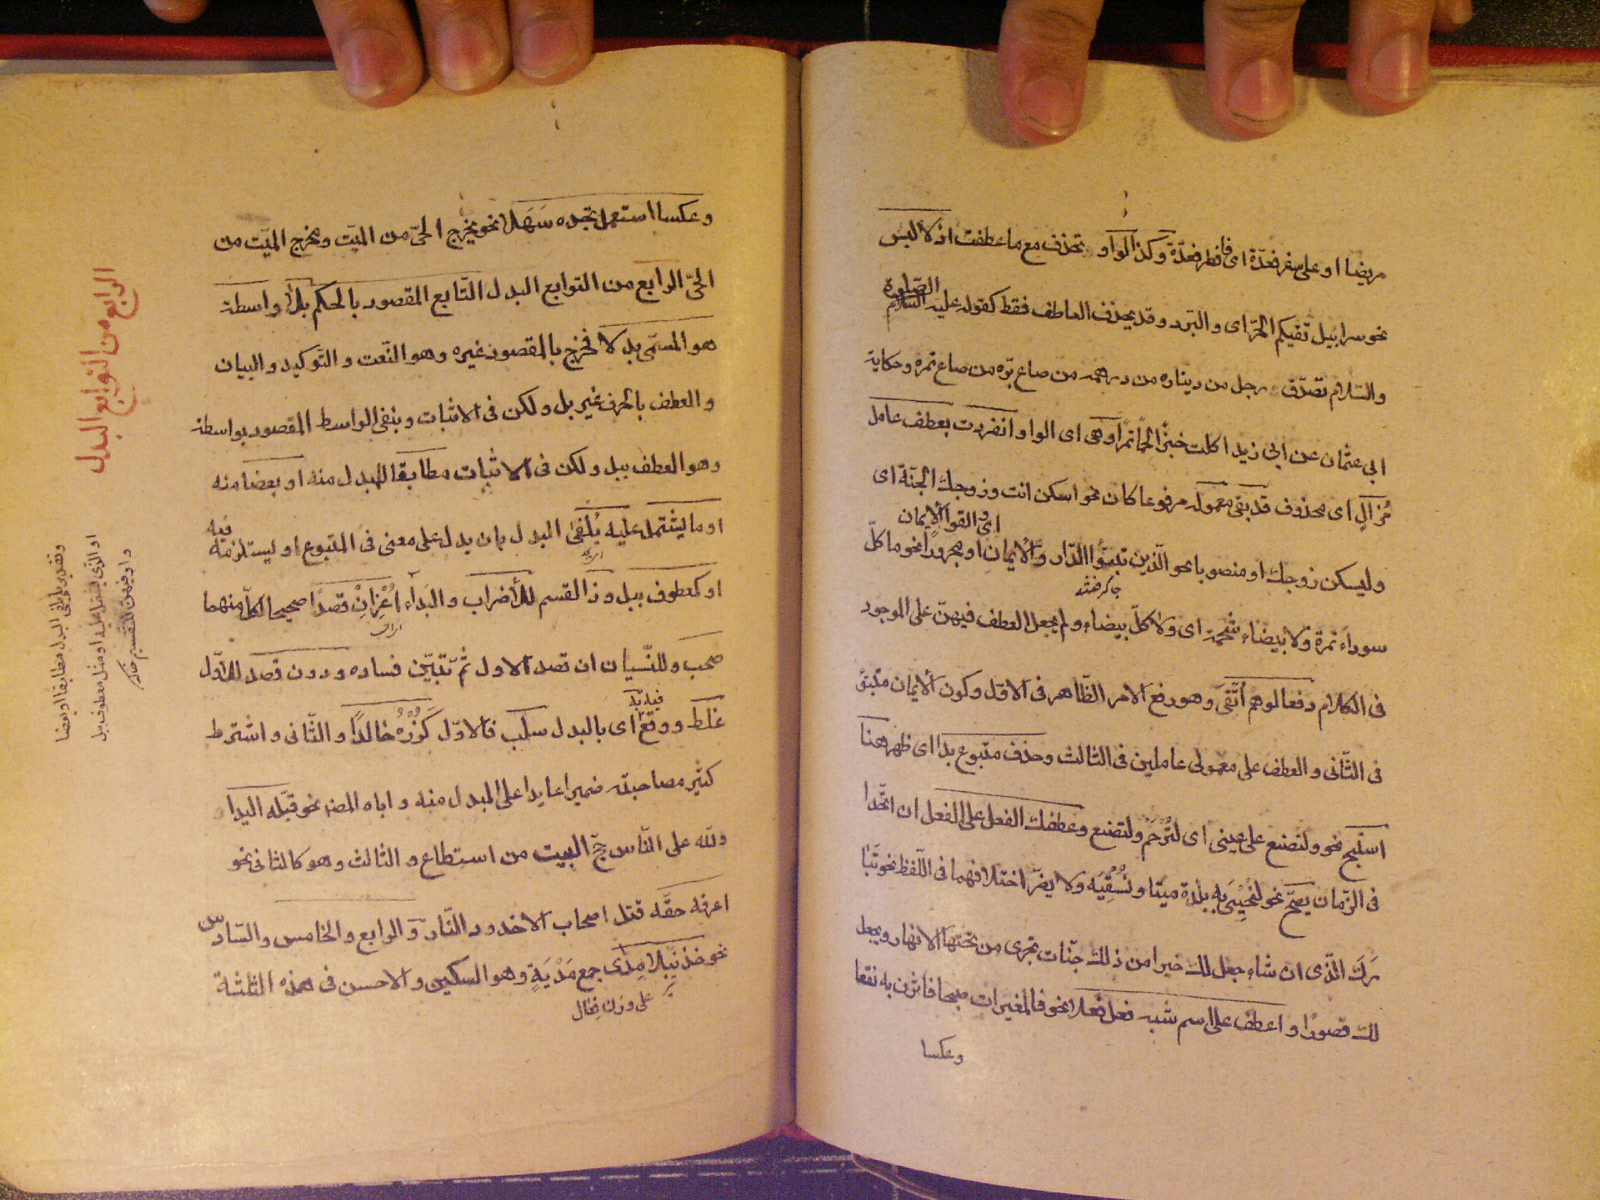 مريضا او على سفر فعدّة اى فافطر فعدّة وكذا الواو تحذف مع ما عطفت اذ لا لبس
نحو سرابيل تقيكم الحرّ اى و البرد وقد يحذف العاطف فقط كقوله عليه الصلوة
والسّلام تصدّق رجل من ديناره من درهمه من صاع برّه من صاع تمره وحكاية
ابى عثمان عن ابى زيد اكلت خبزًا لحمًا تمرًا وهى اى الواو انفردت بعطف عامل
مُزالٍ اى محذوف قد بقى معموله مرفوعا كان نحو اسكن انت وزوجك الجنّة اى
اى و القوا الايمان
وليسكن زوجك او منصوبا نحو الّذين تبوّؤا الدّار والايمان او مجرورًا نحو ما كلّ
سوداء تمرة ولا بيضاء شحمة اى ولا كلّ بيضاء ولم يجعل العطف فيهنّ على الموجود
فى الكلام دفعا لوهم اتّقى وهو رفع الامر الظّاهر فى الاوّل وكون الايمان متبوّء
فى الثّانى و العطف على معمولى عاملين فى الثالث وحذف متبوع بدا اى ظهر هنا
استبح نحو ولتصنع على عينى اى لترحم ولتصنع وعطفك الفعل على الفعل ان اتّحدا
فى الزّمان يصحّ نحو لنحيى به بلدة ميتا ونسقيه ولا يضرّ اختلافهما فى اللّفظ نحو تبا
رك الّذى ان شاء جعل لك خيرا من ذلك جنّات تجرى من تحتها الانهار ويجعل
لك قصورًا واعطف على اسم شبه فعل فعلا نحو فالمغيرات صبحا فاثرن به نقعا
وعكسا
وعكسا استعمل تجده سَهَلا نحو يخرج الحىّ من الميّت ومخرج الميّت من
الحىّ الرابع من التوابع البدل التّابع المقصود بالحكم بلا واسطة
هو المسمّى بدلا فخرج بالمقصود غيره وهو النّعت و التّوكيد و البيان
و العطف بالحرف غير بل ولكن فى الاثبات وبنفى الواسط المقصود بواسطة
وهو العطف ببل ولكن فى الاثبات مطابقا للبدل منه او بعضا منه
او ما يشتمل عليه يُلْفى البدل بان يدل على معنى فى المتبوع او يستلزمه فيه
او كمعطوف ببل وذا القسم للاضراب و البداء اعز ان قصدا صحيحا لكلّ منهما
صحب وللنّسيان ان قصد الاول ثمّ تبيّن فساده ودون قصد للاوّل
غلط ووقع اى بالبدل سلب فالاوّل كزره خالدًا و الثّانى واشترط
كثير مصاحبته ضميرا عايدا على المبدل منه و اباه المص نحو قبّله اليدا
ولله على النّاس حجّ البيت من استطاع و الثالث وهو كالثانى نحو
اعرفه حقّه قتل اصحاب الاخدود النّار و الرابع و الخامس والسّادس
نحو خذ نبلا مدى جمع مَدْيَةٍ وهو السكين والاحسن فى هذه الثلثة
على وزن فعال
الرابع من التوابع البدل